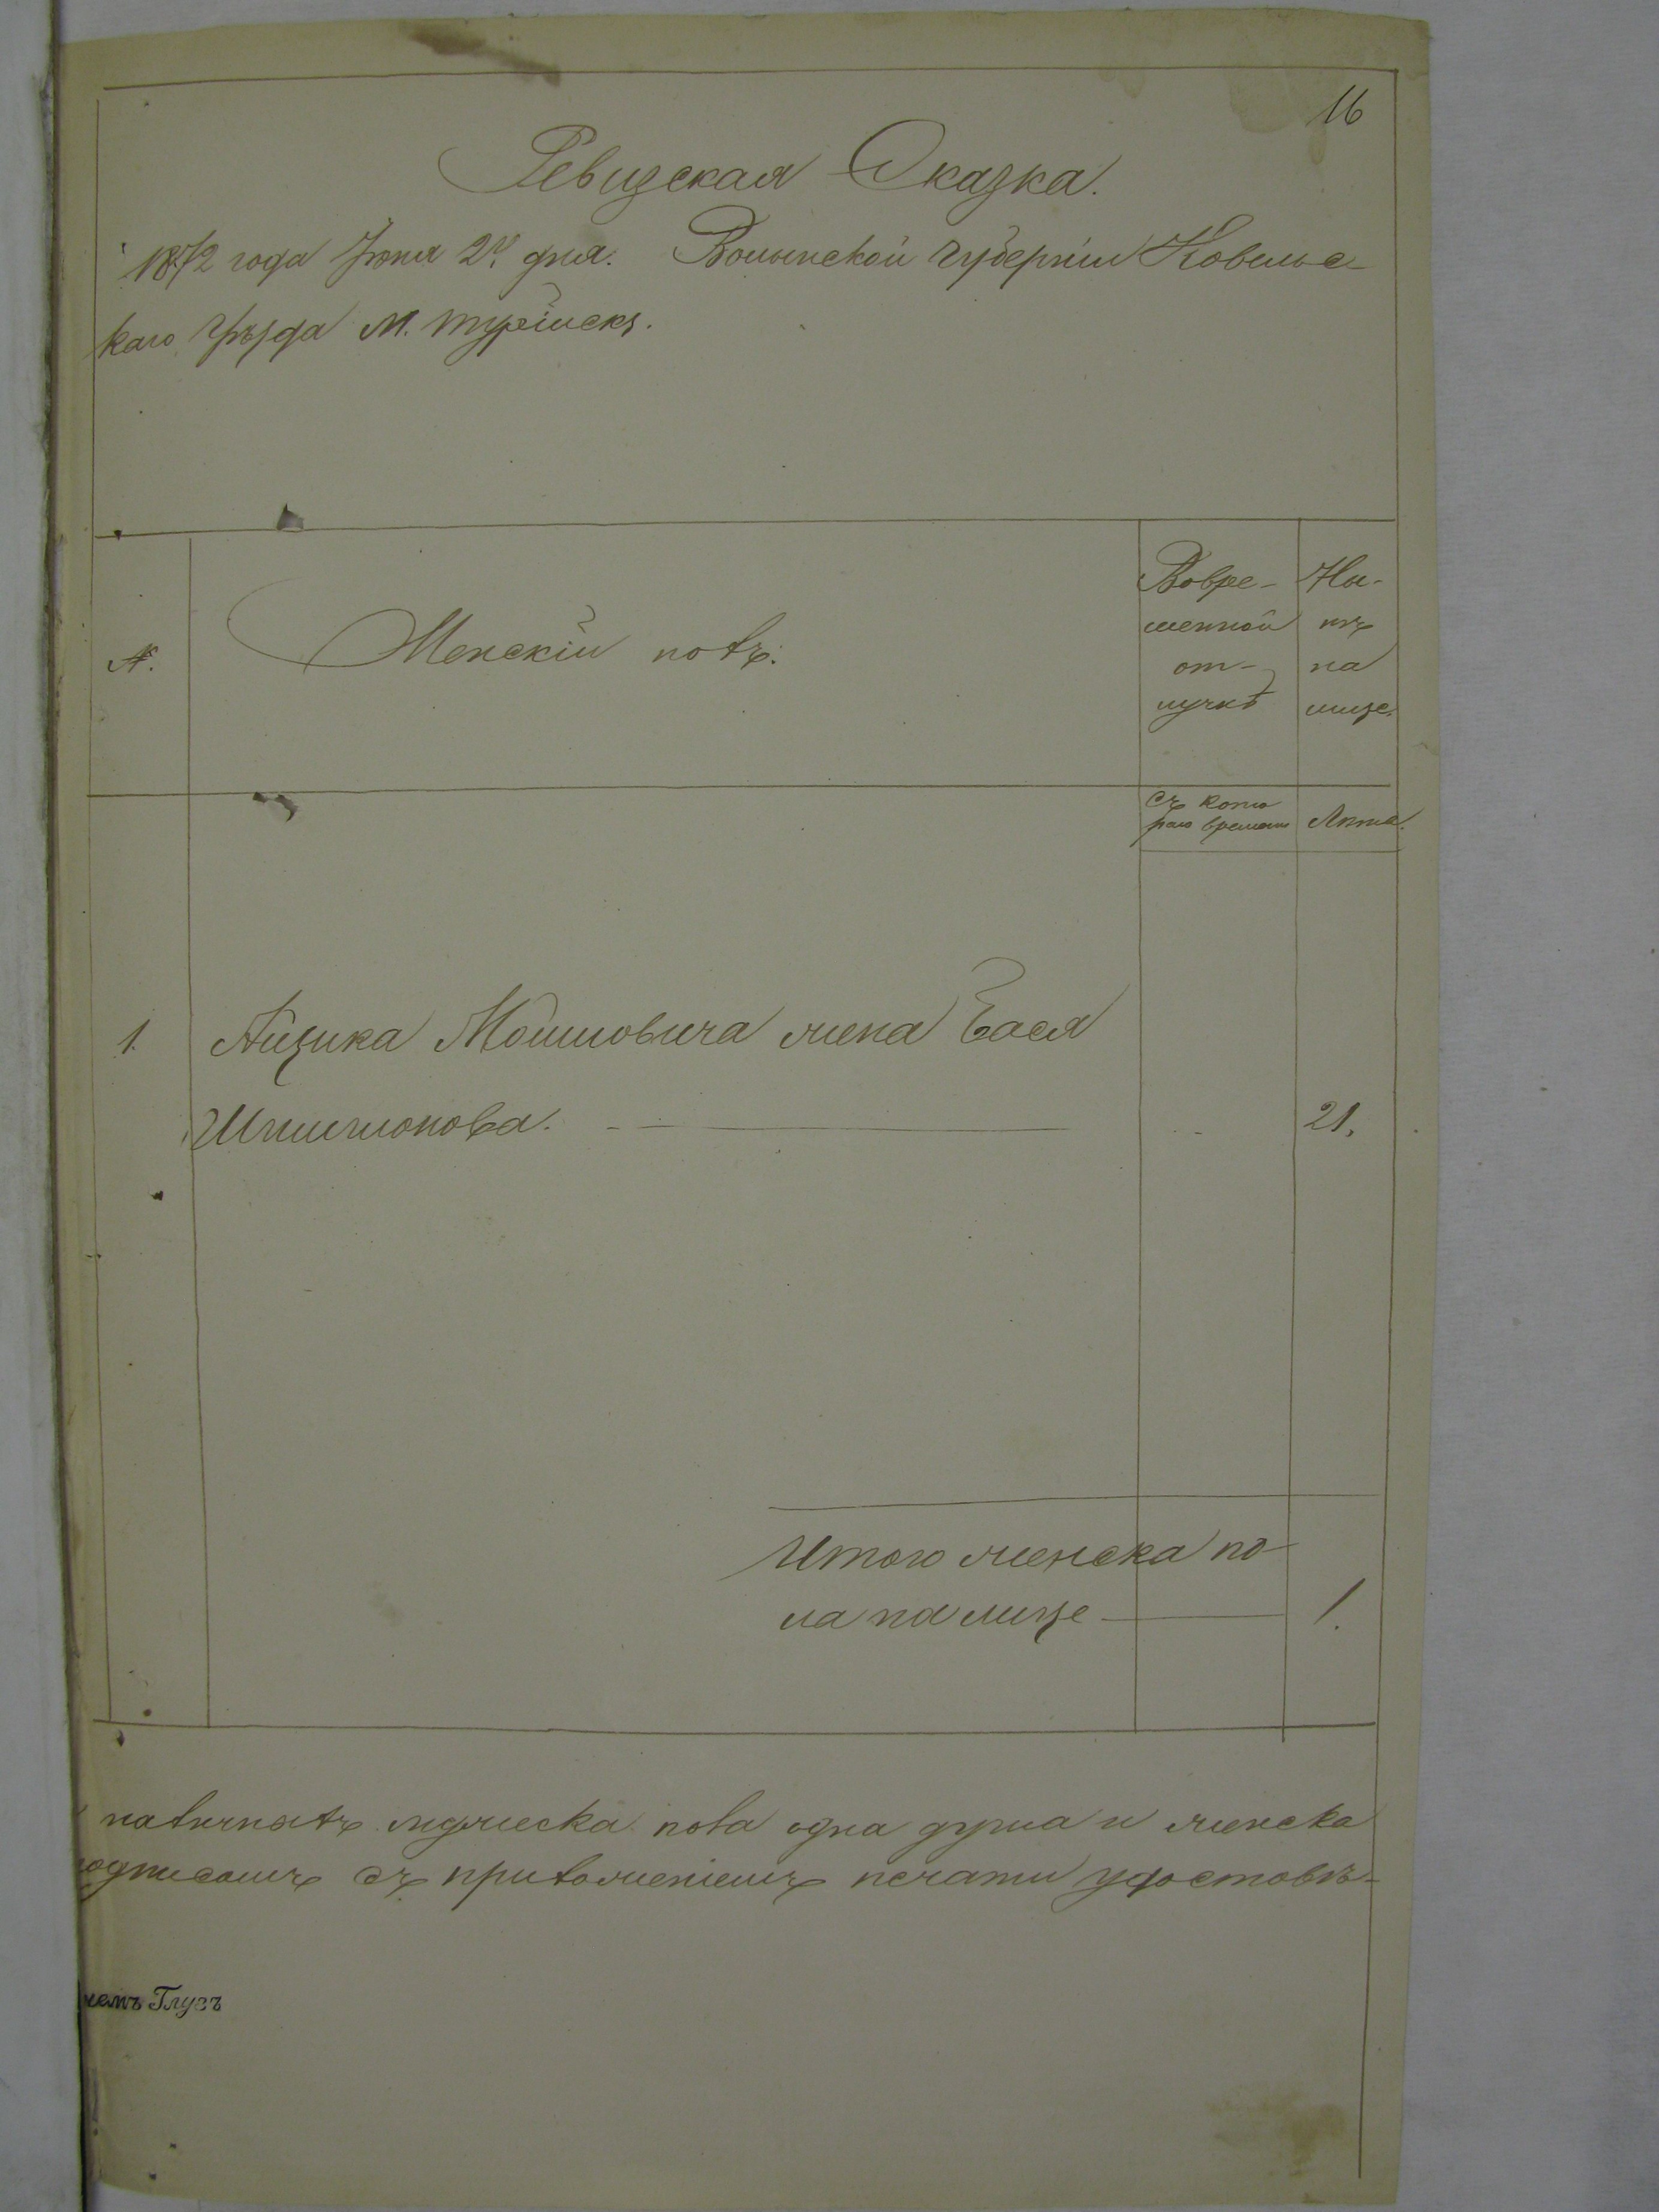 16
Ревизская Сказка.
1872 года Іюня 2 дня. Волынской Губерніи Ковельс-
каго Уѣзда М. Турійскъ.
№.
Женскій полъ.
Вовре-
менной
от-
лучкѣ
Ны-
нѣ
на
лице.
съ кото
раго времени
Лѣта.
1. Айзика Мошковича жена Бася
Шлиомова. 21.
Итого женска по-
ла на лице 1.
наличнахъ мужеска пола одна душа и женска
подписомъ съ приложеніемъ печати удостовѣ-
Глузъ